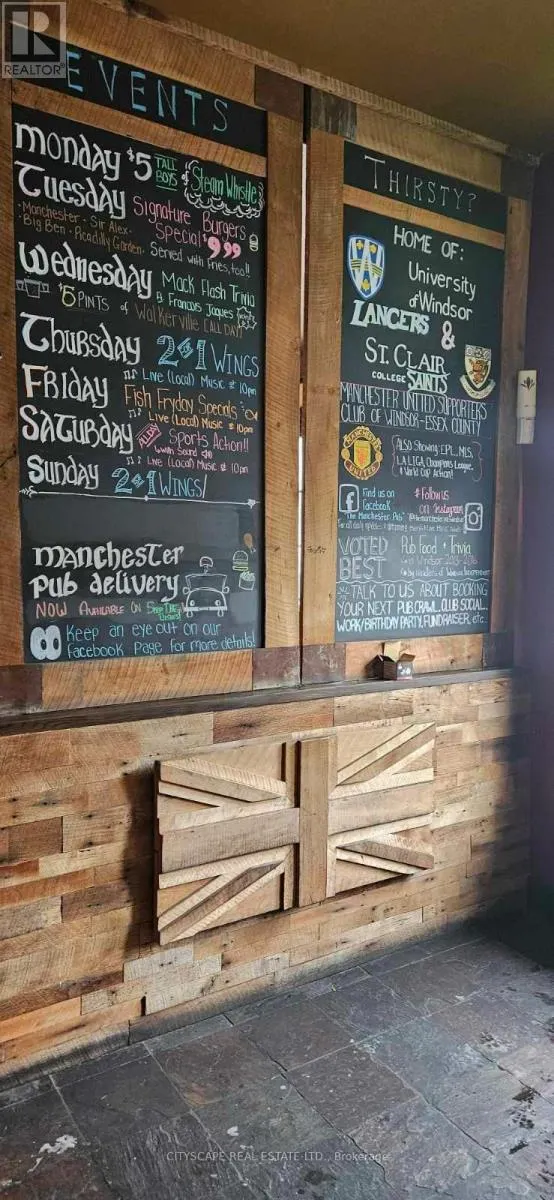 R
REALTOR®
EVENTS
monday $5 TALL BOYS of Steam Whistle
Tuesday Signature Burgers
Special $9.99
• Manchester • Sir Alex •
• Big Ben • Picadilly Garden • Served with Fries, too!!
Wednesday Mack Flash Trivia
Francois Jaques
$5 PINTS of Walkerville (ALL DAY)
Thursday 2 4 1 WINGS
Live (Local) Music @ 10pm
FRIDAY Fish Fryday Specials
Live (Local) Music @ 10pm
SATURDAY Sports Action!!
with Sound
Live (Local) Music @ 10pm
Sunday 2 4 1 WINGS!
manchester
pub delivery
NOW AVAILABLE ON
Keep an eye out on our
facebook page for more details!
THIRSTY?
HOME OF:
University
of Windsor
LANCERS &
ST. CLAIR
COLLEGE SAINTS
MANCHESTER UNITED SUPPORTERS
CLUB OF WINDSOR-ESSEX COUNTY
MANCHESTER
UNITED
ALSO Showing: EPL, MLS,
LA LIGA, Champions League,
& World Cup Action!
Find us on
Facebook
"The Manchester Pub"
# Follow us
on Instagram
VOTED
BEST
Pub Food & Trivia
in Windsor 2015-2016
TALK TO US ABOUT BOOKING
YOUR NEXT PUB CRAWL, CLUB SOCIAL,
WORK/BIRTHDAY PARTY, FUNDRAISER, etc..
CITYSCAPE REAL ESTATE LTD., Brokerage